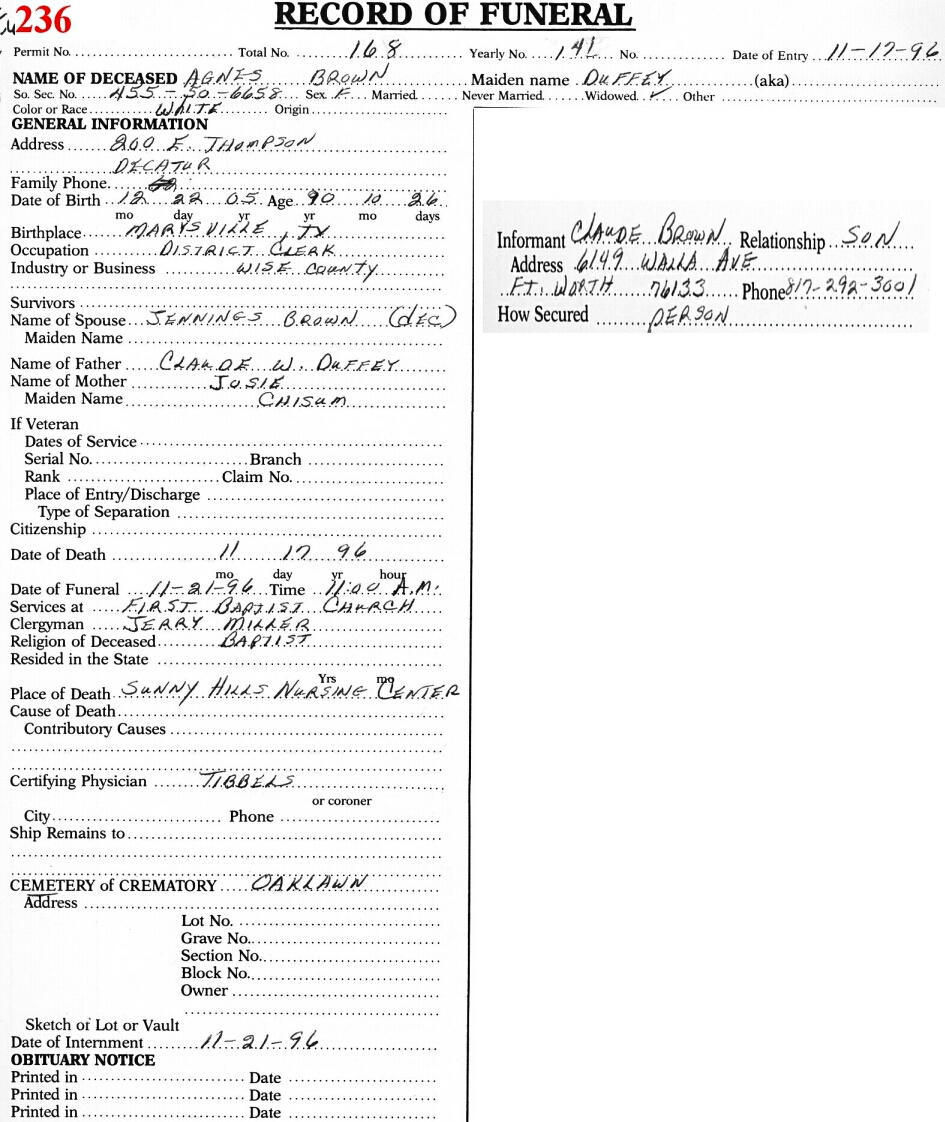 236
RECORD OF FUNERAL
Permit No. Total No. 168 Yearly No. 141 No. Date of Entry 11-17-96
NAME OF DECEASED AGNES BROWN Maiden name DUFFEY (aka)
So. Sec. No. 455-50-6658 Sex F Married Never Married Widowed ✓ Other
Color or Race WHITE Origin
GENERAL INFORMATION
Address 200 E. THOMPSON
DECATUR
Family Phone
Date of Birth 12 22 05 Age 90 10 26
mo day yr yr mo days
Birthplace MARYSVILLE, TX
Occupation DISTRICT CLERK
Industry or Business WISE COUNTY
Survivors
Name of Spouse JENNINGS BROWN (DEC)
Maiden Name
Name of Father CLAUDE W. DUFFEY
Name of Mother JOSIE
Maiden Name CHISUM
If Veteran
Dates of Service
Serial No. Branch
Rank Claim No.
Place of Entry/Discharge
Type of Separation
Citizenship
Date of Death 11 17 96
mo day yr hour
Date of Funeral 11-21-96 Time 11:00 A.M.
Services at FIRST BAPTIST CHURCH
Clergyman JERRY MILLER
Religion of Deceased BAPTIST
Resided in the State
Yrs mo
Place of Death SUNNY HILLS NURSING CENTER
Cause of Death
Contributory Causes
Certifying Physician TIBBELS
or coroner
City Phone
Ship Remains to
CEMETERY of CREMATORY OAKLAWN
Address
Lot No.
Grave No.
Section No.
Block No.
Owner
Sketch or Lot or Vault
Date of Internment 11-21-96
OBITUARY NOTICE
Printed in Date
Printed in Date
Printed in Date
Informant CLAUDE BROWN Relationship SON
Address 6149 WALLA AVE
FT. WORTH 76133 Phone 817-292-3001
How Secured PERSON